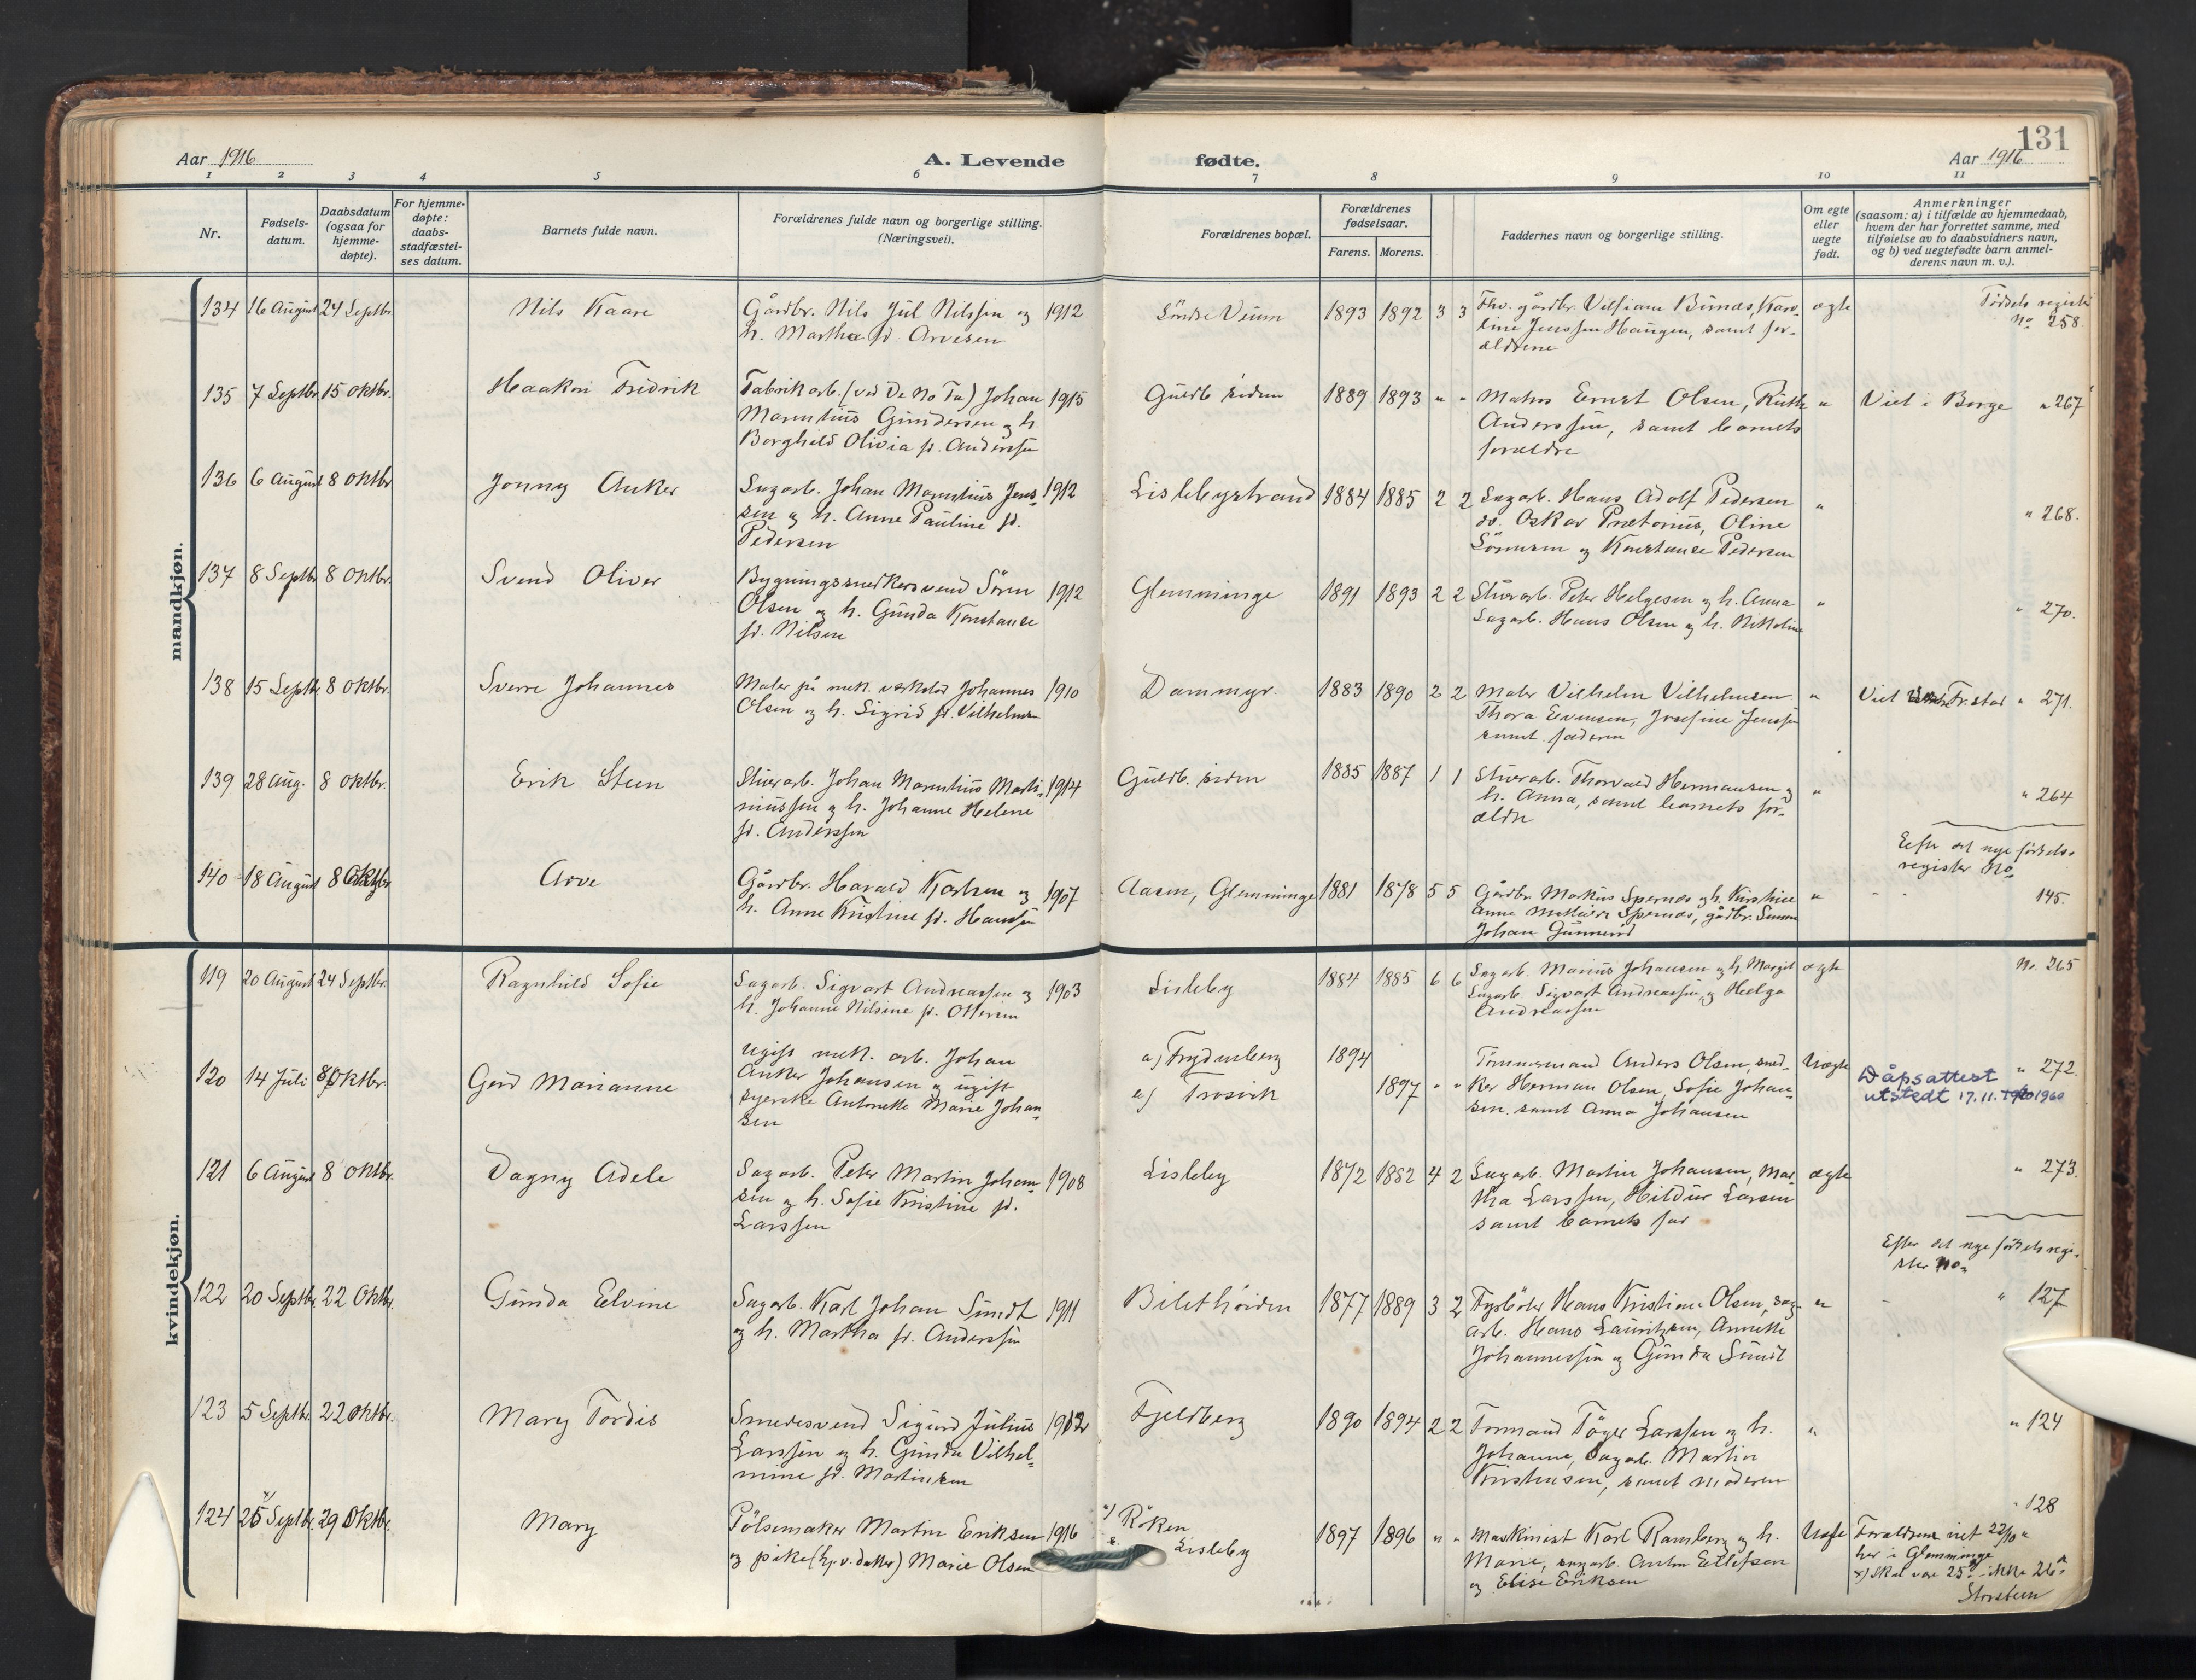 131
Aar 1916
A. Levende
fødte.
Aar 1916
1 2 3 4 5 6 7 8 9 10 11
Nr.
Fødsels-
datum.
Daabsdatum
(ogsaa for
hjemme-
døpte).
For hjemme-
døpte:
daabs-
stadfæstel-
ses datum.
Barnets fulde navn.
Forældrenes fulde navn og borgerlige stilling.
(Næringsvei).
Forældrenes bopæl.
Forældrenes
fødselsaar.
Farens. Morens.
Faddernes navn og borgerlige stilling.
Om egte
eller
uegte
født.
Anmerkninger
(saasom: a) i tilfælde av hjemmedaab,
hvem der har forrettet samme, med
tilføielse av to daabsvidners navn,
og b) ved uegtefødte barn anmel-
derens navn m. v.).
mandkjøn.
134 16 August 24 Septbr. Nils Kaare
Gårdbr. Nils Jul Nilssen og 1912
h. Martha fd. Arvesen
Söndre Veum 1893 1892 3 3
Fhv. gårdbr. Vilhiam Bunæs, Karo-
line Jenssen Haugen, samt for-
ældrene
ægte
Födsels registr
No 258.
135 7 Septbr. 15 Oktbr. Haakon Fredrik
Fabrikarb. (ved De No Fa) Johan 1915
Marentius Gundersen og h.
Borghild Olivia fd. Anderssen
Guldb. siden 1889 1893 " "
Matros Ernst Olsen, Ruth
Anderssen, samt barnets
forældre
"
Viet i Borge " 267
136 6 August 8 Oktbr. Jonny Anker
Sagarb. Johan Marentius Jens- 1912
sen og h. Anne Pauline fd.
Pedersen
Lislebystrand 1884 1885 2 2
Sagarb. Hans Adolf Pedersen
do. Oskar Prætorius, Oline
Sörensen og Konstanse Pedersen
"
" 268.
137 8 Septbr. 8 Oktbr. Svend Oliver
Bygningssnedkersvend Sören 1912
Olsen og h. Gunda Konstanse
fd. Nilsen
Glemminge 1891 1893 2 2
Stuerarb. Peter Helgesen og h. Anna
Sagarb. Hans Olsen og h. Nikoline
"
" 270.
138 15 Septbr. 8 Oktbr. Sverre Johannes
Maler på mek. verksted Johannes 1910
Olsen og h. Sigrid fd. Vilhelmsen
Dammyr. 1883 1890 2 2
Maler Vilhelm Vilhelmsen
Thora Evensen, Josefine Jenssen
samt faderen
"
Viet Fr.stad " 271.
139 28 Aug. 8 Oktbr. Erik Steen
Stuerarb. Johan Marentius Marti- 1914
niussen og h. Johanne Helene
fd. Anderssen
Guldb. siden 1885 1887 1 1
Stuerarb. Thorvald Hermansen og
h. Anna, samt barnets for-
ældre
"
" 264
Efter det nye födsels-
register No
140 18 August 8 Oktbr. Arve
Gårdbr. Harald Karlsen og 1907
h. Anne Kristine fd. Hanssen
Aasen, Glemminge 1881 1878 5 5
Gårdbr. Markus Spernes og h. Kirstine
Anne Spernes, gårdbr. Simen
Johan Gunnerød
"
145.
kvindekjøn.
119 20 August 24 Septbr. Ragnhild Sofie
Sagarb. Sigvart Andreassen og 1903
h. Johanne Nilsine fd. Ottersen
Lisleby 1884 1885 6 6
Sagarb. Marius Johansen og h. Margit
Sagarb. Sigvart Andreassen, og Helga
Andreassen
ægte
No. 265
120 14 Juli 8 Oktbr. Gerd Marianne
Ugift mek. arb. Johan
Anker Johansen og ugift
syerske Antonette Marie Johan-
sen
a) Frydenberg 1894
b) Trosvik 1897 " "
Tømmermand Anders Olsen, sned-
ker Herman Olsen, Sofie Johan-
sen samt Anna Johansen
Uægte
" 272.
Dåpsattest
utstedt 17.11. 1960
121 6 August 8 Oktbr. Dagny Adele
Sagarb. Peter Martin Johan- 1908
sen og h. Sofie Kristine fd.
Larssen
Lisleby 1872 1882 4 2
Sagarb. Martin Johansen, Mar-
tha Larssen, Hildur Larsen
samt barnets far
ægte
" 273.
Efter det nye födselsregi-
ster No.
122 20 Septbr. 22 Oktbr. Gunda Elvine
Sagarb. Karl Johan Sundt 1911
og h. Martha fd. Anderssen
Bilethöiden 1877 1889 3 2
Fyrböter Hans Kristian Olsen, sag-
arb. Hans Lauritzsen, Annette
Johannessen og Gunda Sundt
"
" 127
123 5 Septbr. 22 Oktbr. Mary Tordis
Smedesvend Sigurd Julius 1912
Larssen og h. Gunda Vilhel-
mine fd. Martinsen
Fjeldberg 1890 1894 2 2
Formand Töger Larssen og h.
Johanne, Sagarb. Martin
Kristensen, samt moderen
"
" 124
124 25 x) Septbr. 29 Oktbr. Mary
Pölsemaker Martin Eriksen 1916
og pike (hj. v. datter) Marie Olsen
a) Röken
Lisleby 1897 1896 " "
Maskinist Karl Ramberg og h.
Marie, sagarb. Anton Edlefsen
og Elise Eriksen
Uægte
" 128
Forældrene viet 22/10
her i Glemminge
x) Skal være 25 - ikke 26
Storsteen